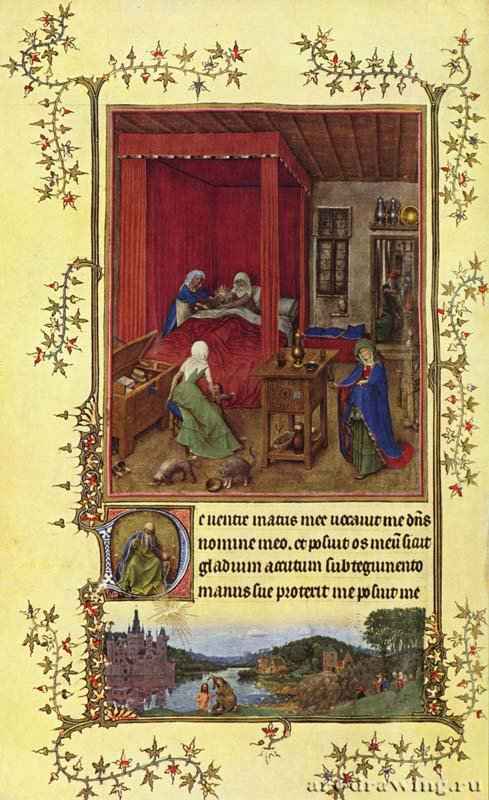 De ventre matris mee vocavit me dn̄s
nomine meo. et posuit os meū sicut
gladium acutum sub tegumento
manus sue protexit me posuit me
artdrawing.ru